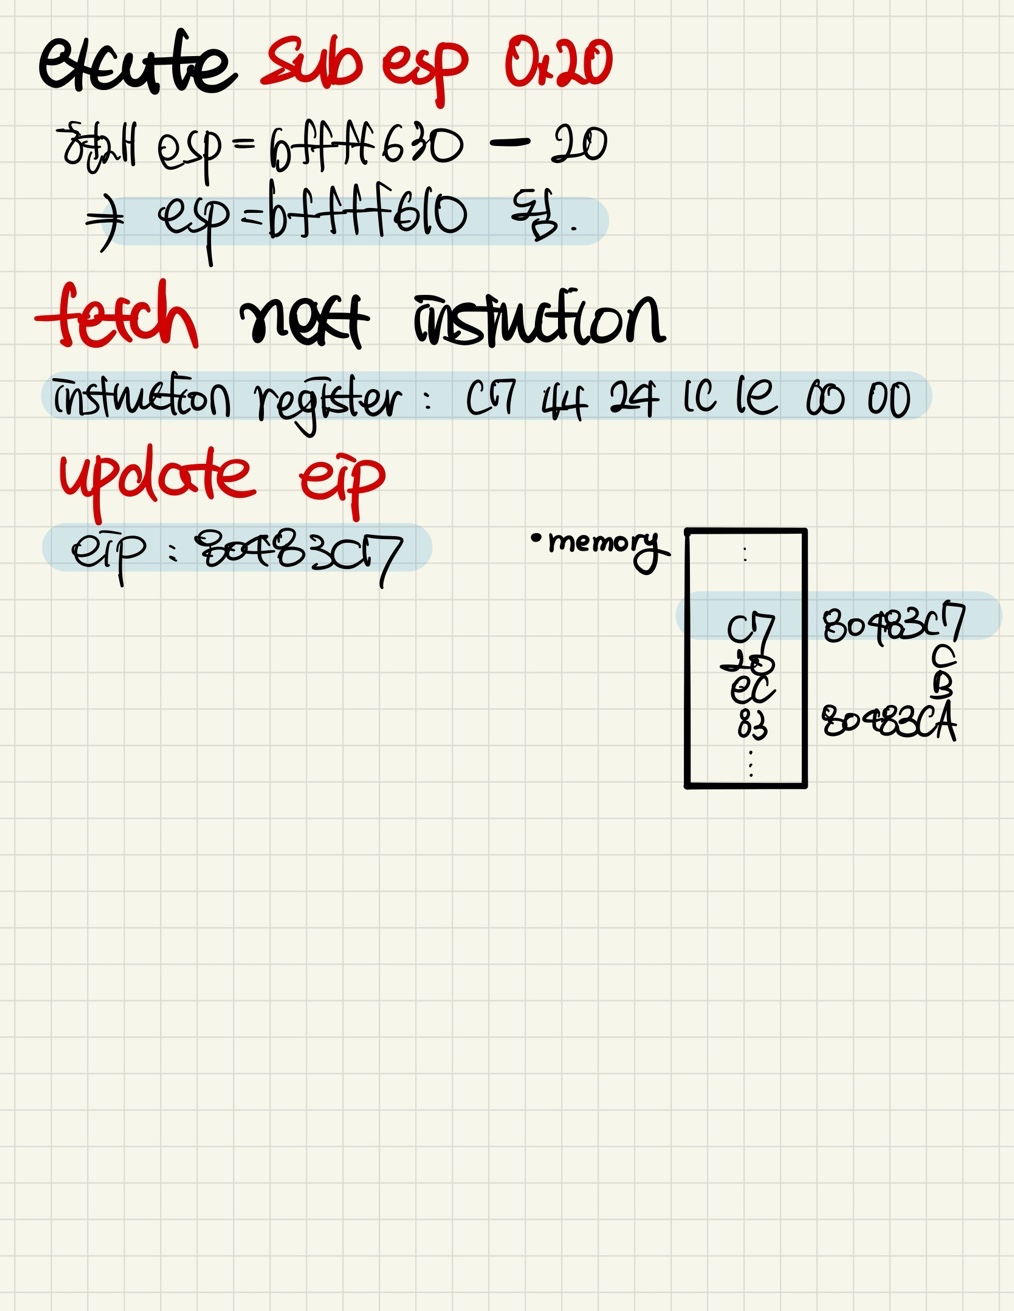 excute sub esp 0x20
현재 esp = bffff630 - 20
⇒ esp = bffff610 됨.
fetch next instruction
instruction register : C7 44 24 1C 1e 00 00
update eip
eip : 80483C7
• memory
⋮
C7 80483C7
20 C
eC B
83 80483CA
⋮